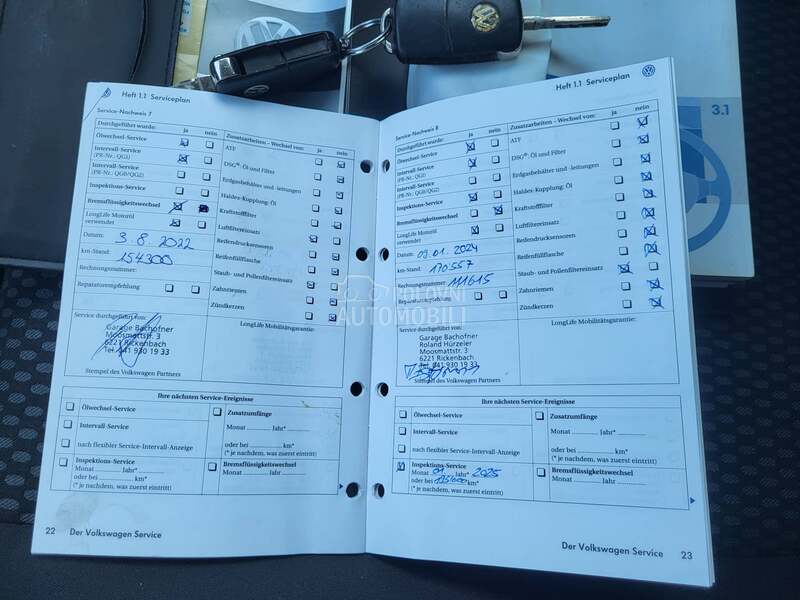 Heft 1.1 Serviceplan
Service-Nachweis 7
Durchgeführt wurde: ja nein
Zusatzarbeiten – Wechsel vom: ja nein
Ölwechsel-Service
ATF
Intervall-Service
(PR-Nr. QG1)
DSG®-Öl und Filter
Intervall-Service
(PR-Nr. QG0/QG2)
Erdgasbehälter und -leitungen
Inspektions-Service
Haldex-Kupplung: Öl
Bremsflüssigkeitswechsel
Kraftstofffilter
LongLife Motoröl
verwendet
Luftfiltereinsatz
Datum: 3.8.2022
Reifendrucksensoren
km-Stand: 154300
Reifenfüllflasche
Rechnungsnummer:
Staub- und Pollenfiltereinsatz
Reparaturempfehlung
Zahnriemen
Zündkerzen
Service durchgeführt von:
LongLife Mobilitätsgarantie:
Garage Bachofner
Moosmattstr. 3
6221 Rickenbach
Tel 041 930 19 33
Stempel des Volkswagen Partners
Ihre nächsten Service-Ereignisse
Ölwechsel-Service
Zusatzumfänge
Intervall-Service
Monat Jahr*
nach flexibler Service-Intervall-Anzeige
oder bei km*
(* je nachdem, was zuerst eintritt)
Inspektions-Service
Monat Jahr*
oder bei km*
(* je nachdem, was zuerst eintritt)
Bremsflüssigkeitswechsel
Monat Jahr
22 Der Volkswagen Service
Heft 1.1 Serviceplan
Service-Nachweis 8
Durchgeführt wurde: ja nein
Zusatzarbeiten – Wechsel vom: ja nein
Ölwechsel-Service
ATF
Intervall-Service
(PR-Nr. QG1)
DSG®-Öl und Filter
Intervall-Service
(PR-Nr. QG0/QG2)
Erdgasbehälter und -leitungen
Inspektions-Service
Haldex-Kupplung: Öl
Bremsflüssigkeitswechsel
Kraftstofffilter
LongLife Motoröl
verwendet
Luftfiltereinsatz
Datum: 09.01.2024
Reifendrucksensoren
km-Stand: 170557
Reifenfüllflasche
Rechnungsnummer: 111615
Staub- und Pollenfiltereinsatz
Reparaturempfehlung
Zahnriemen
Zündkerzen
Service durchgeführt von:
LongLife Mobilitätsgarantie:
Garage Bachofner
Roland Hürzeler
Moosmattstr. 3
6221 Rickenbach
Tel. 041 930 19 33
Stempel des Volkswagen Partners
Ihre nächsten Service-Ereignisse
Ölwechsel-Service
Zusatzumfänge
Intervall-Service
Monat Jahr*
nach flexibler Service-Intervall-Anzeige
oder bei km*
(* je nachdem, was zuerst eintritt)
Inspektions-Service
Monat 01 Jahr* 2025
oder bei km*
(* je nachdem, was zuerst eintritt)
Bremsflüssigkeitswechsel
Monat Jahr
Der Volkswagen Service 23
3.1
POLOVNI
AUTOMOBILI